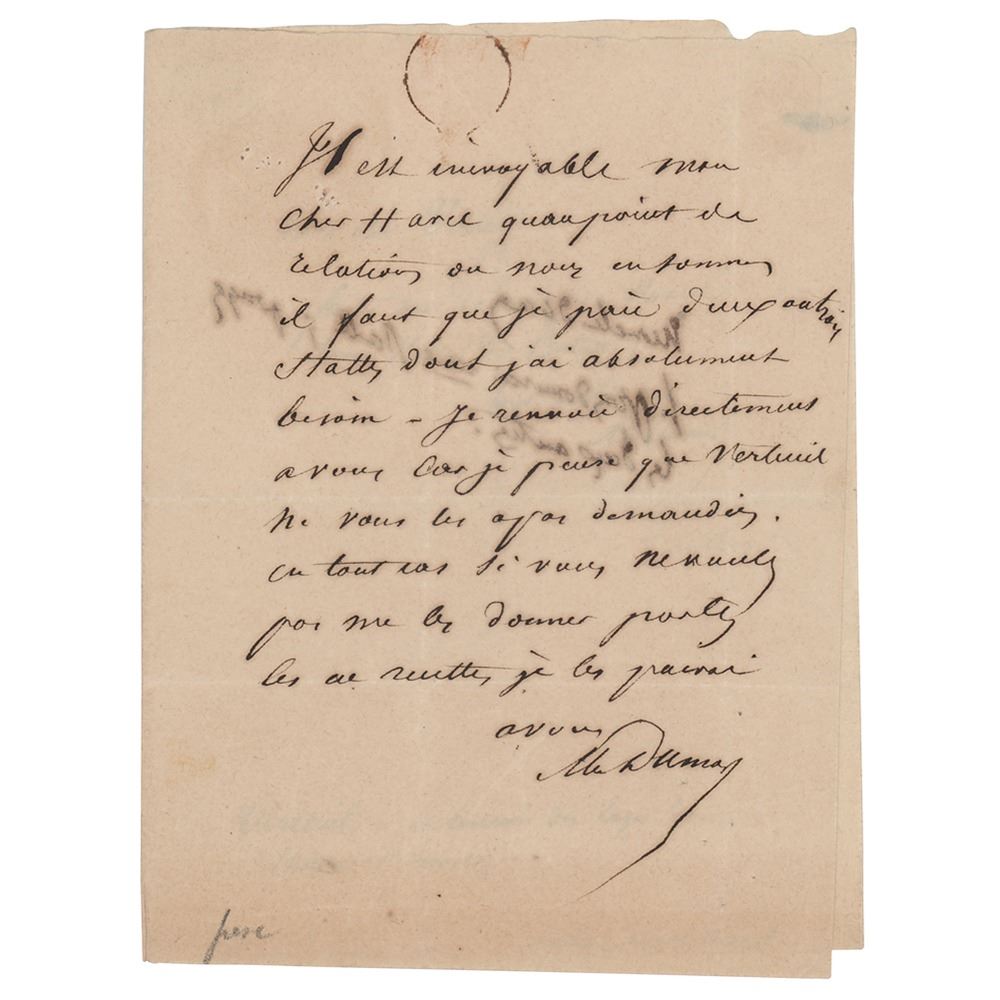 Il est incroyable mon
cher Harel quau point de
relations ou nous en sommes
il faut que je paie deux ou trois
Stalles dont jai absolument
besoin - Je renvoie directement
a vous car je pense que Verteuil
ne vous les a pas demandées.
en tout cas si vous ne voulez
pas me les donner portez
les en recettes je les paierai
a vous
Alex Dumas
pere